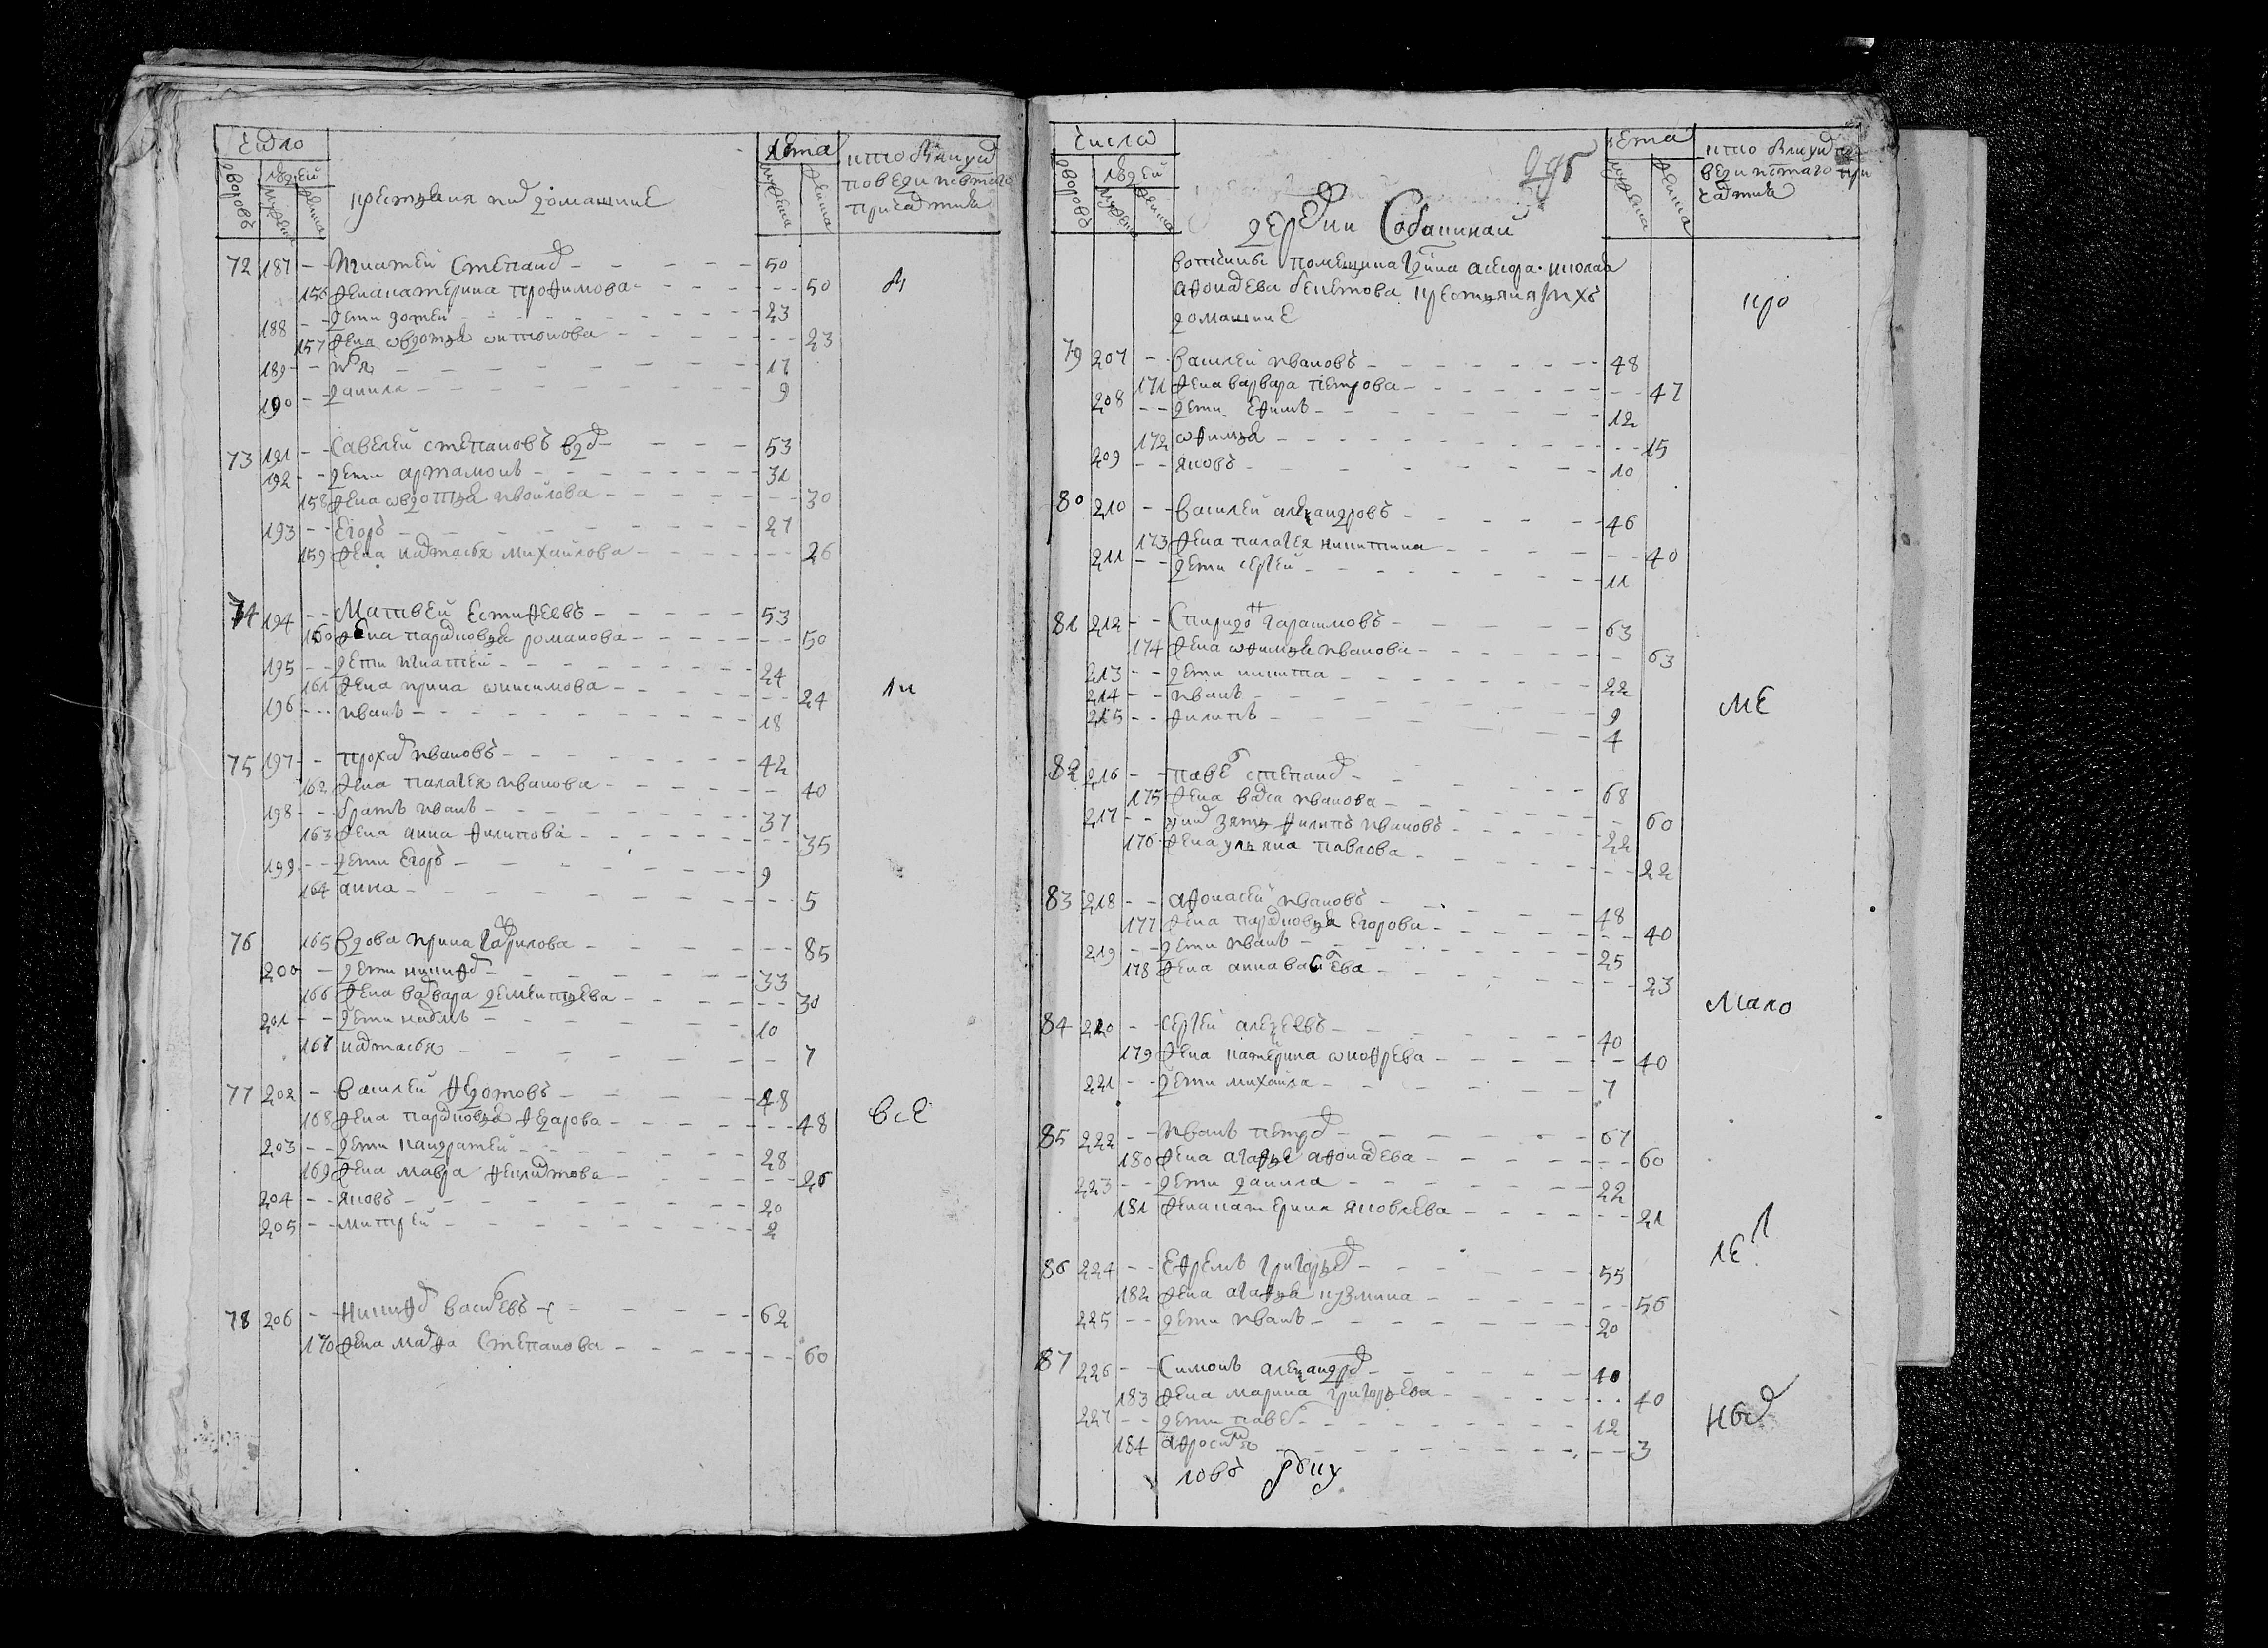 число
лета
дворовъ
людей
мужеска
женска
крестьяня и их домашние
72 187 Игнатей Степанов 50
156 жена катерина трофимова 50
188 дети зотей 23
157 жена овдотья онтонова 23
189 илья 17
190 данила 9
73 191 Савелей степановъ вдов 53
192 дети артамонъ 31
158 жена овдотья 30
193 Егоръ 27
159 жена настасья михайлова 26
74 194 Матвей Естифеевъ 53
160 жена парасковья романова 50
195 дети игнатей 24
161 жена ирина онисимова 24
196 иванъ 18
75 197 прохор ивановъ 42
162 жена палагея иванова 40
198 братъ иванъ 37
163 жена анна филипова 35
199 дети Егоръ 9
164 анна 5
76 165 вдова ирина гаврилова 85
200 дети никифор 33
166 жена варвара дементьева 30
201 дети 10
167 настасья 7
77 202 василей федотовъ 48
168 жена парасковья федорова 48
203 дети панкратей 28
169 жена мавра феклистова 26
204 яковъ 20
205 митрей 2
78 206 никифор васильевъ 62
170 жена марфа Степанова 60
все
число
лета
дворовъ
людей
мужеска
женска
деревни Собакиной
вотчины помещика асесора николая
афонасева бекетова крестьяня и их
домашние
79 207 василей ивановъ 48
171 жена варвара петрова 47
208 дети ефимъ 12
172 офимья 15
209 яковъ 10
80 210 василей александровъ 46
173 жена палагея никитина 40
211 дети сергей 11
81 212 Спиридон гарасимовъ 63
174 жена офимья иванова 63
213 дети никита 22
214 иванъ 9
215 филипъ 4
82 216 павел степанов 68
175 жена васа иванова 60
217 зять филипъ ивановъ 22
176 жена ульяна павлова 22
83 218 афонасей ивановъ 48
177 жена парасковья егорова 40
219 дети иванъ 25
178 жена анна васильева 23
84 220 сергей алексеевъ 40
179 жена катерина онофрева 40
221 дети михайла 7
85 222 иванъ петров 67
180 жена агафья афонасева 60
223 дети данила 22
181 жена катерина яковлева 21
86 224 Ефремъ григорьев 55
182 жена агафья кузмина 56
225 дети иванъ 20
87 226 Симонъ александров 40
183 жена марина григорьева 40
227 дети павел 12
184 афросинья 3
ме
мало